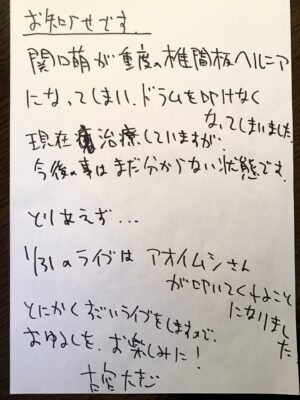 お知らせです.
関口萌が重度の椎間板ヘルニア
になってしまい.ドラムを叩けなく
なってしまいました
現在 治療していますが.
今後の事はまだ分からない状態です.
とりあえず...
1/31のライブは アオイムシさん
が叩いてくれること
になりました
とにかくすごいライブをしますので.
おゆるしを.お楽しみに!
古宮大志